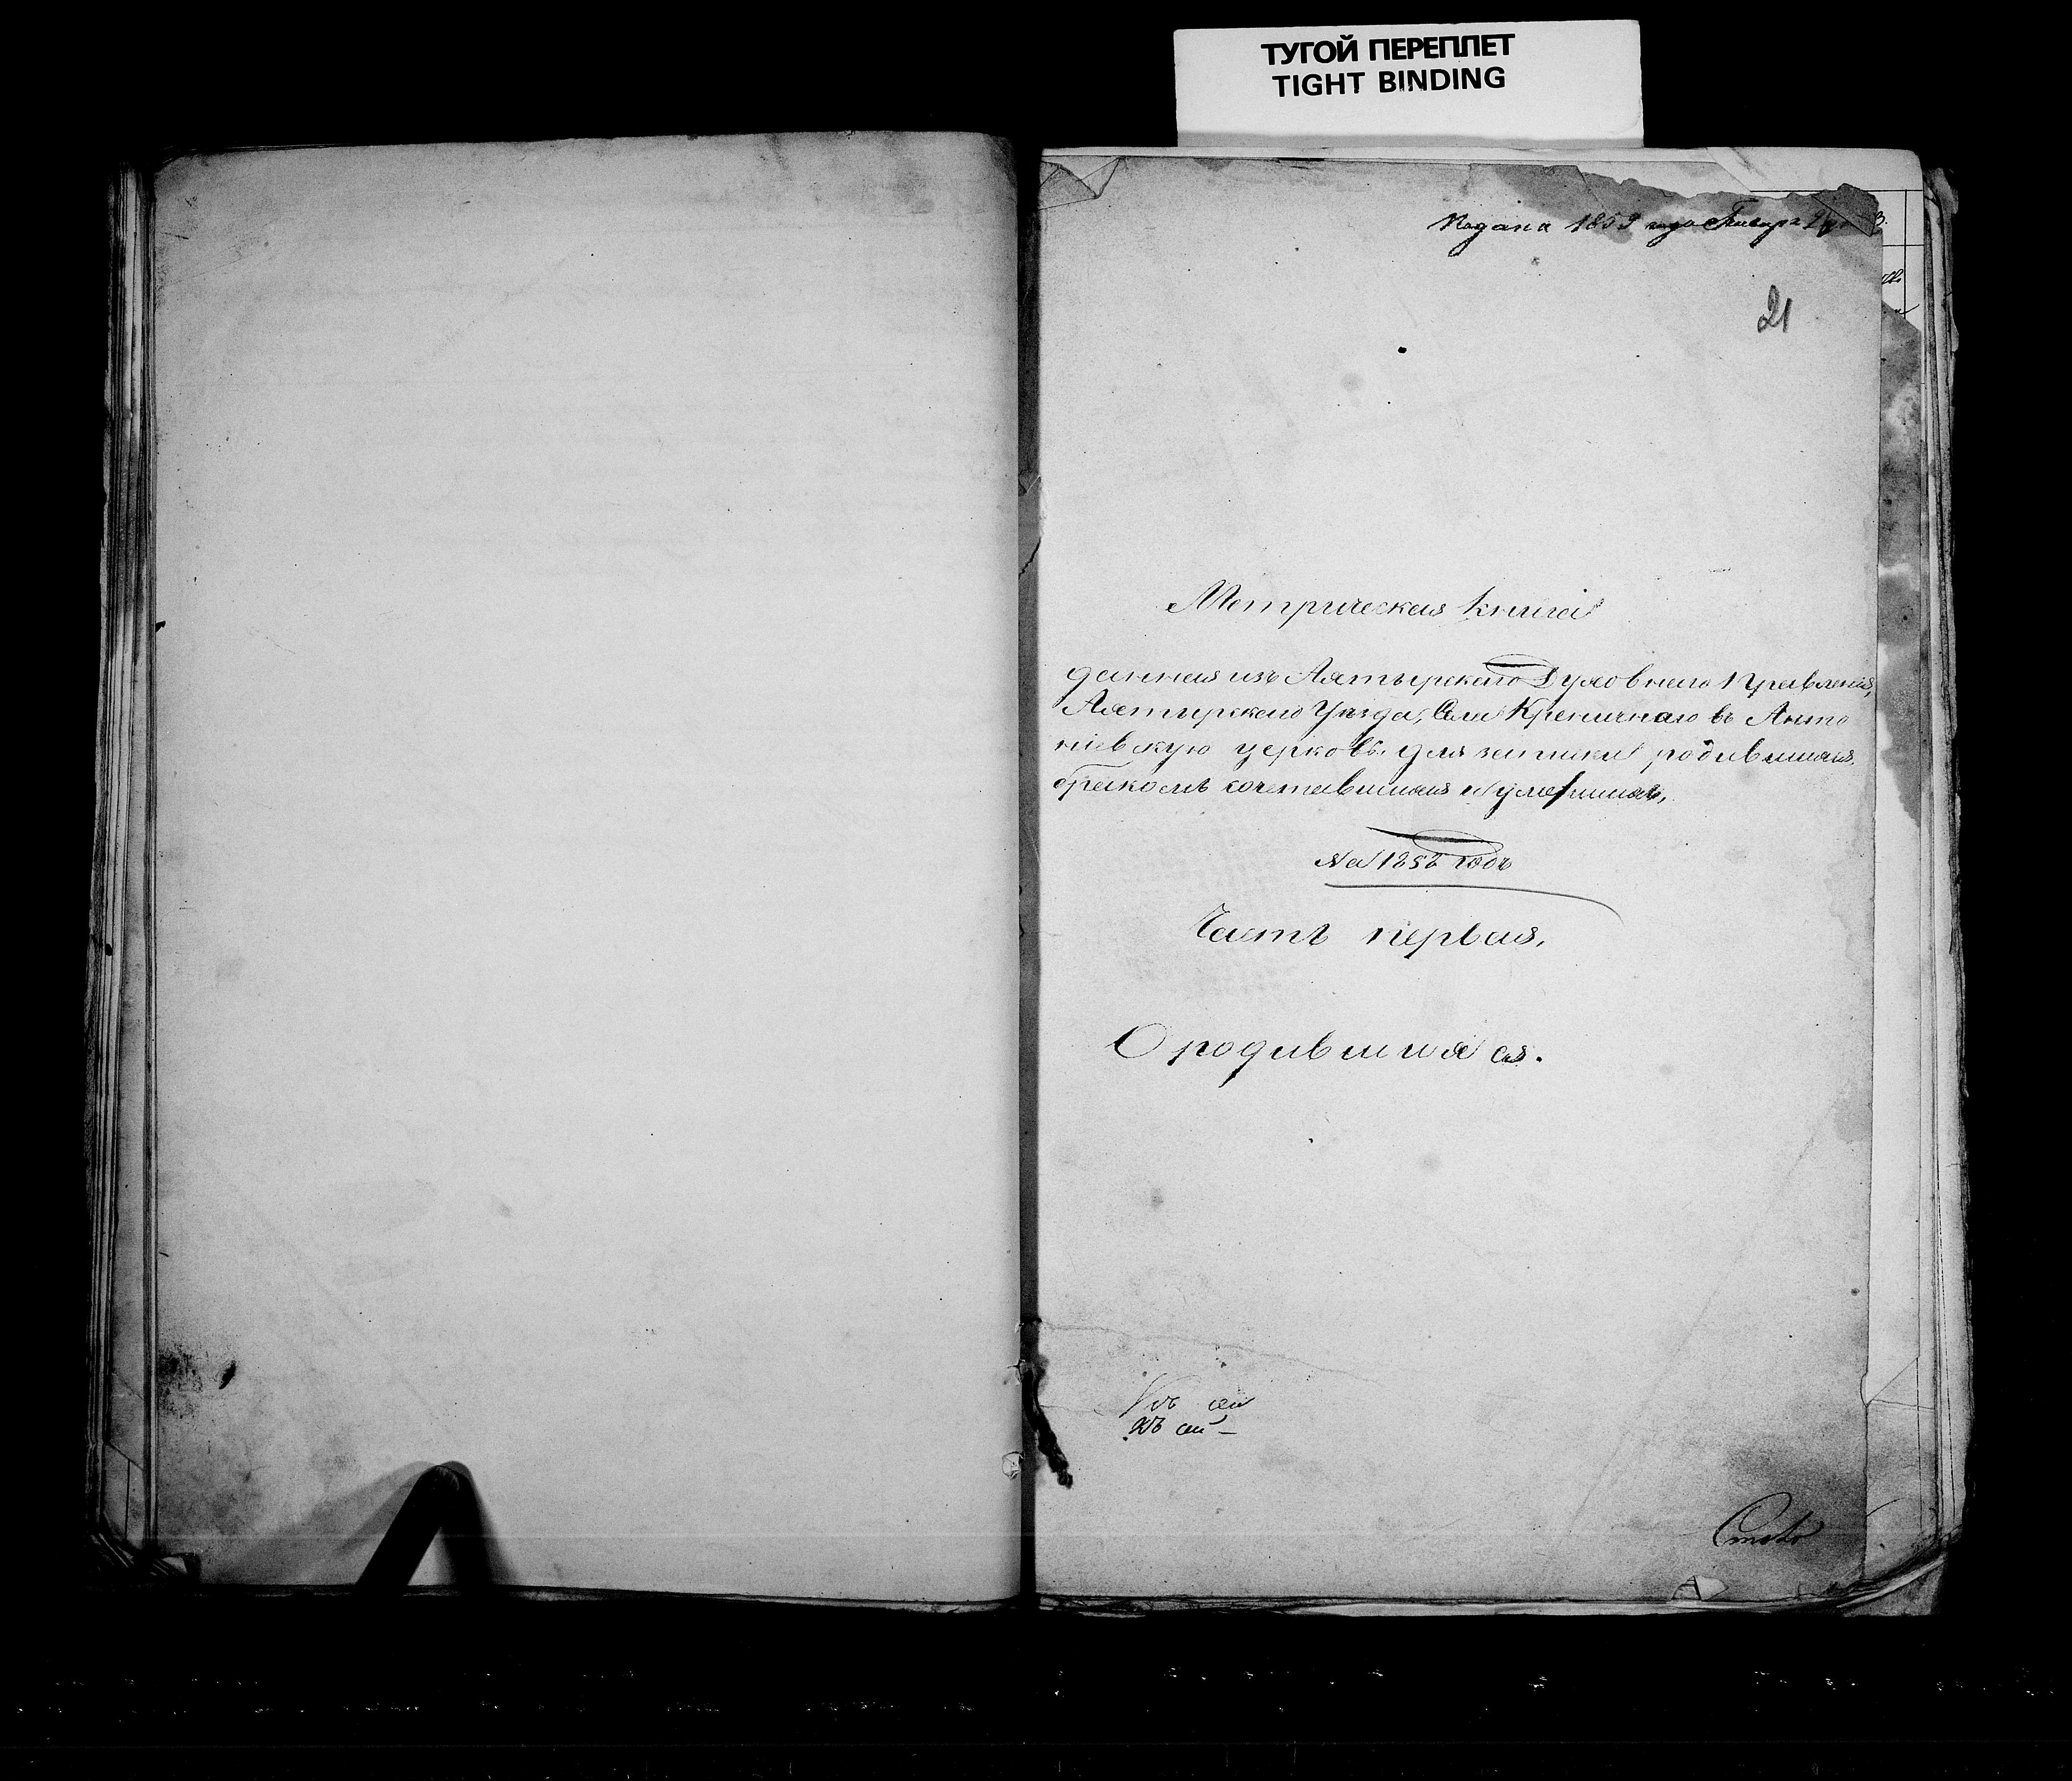 ТУГОЙ ПЕРЕПЛЕТ
TIGHT BINDING
Подана 1859 года Января
21
Метрическая книга
данная изъ Ахтырскаго Духовнаго Правленія,
Ахтырскаго Уѣзда, Села Креничнаго въ Анто
ніевскую церковь для записки родившихся,
бракомъ сочетавшихся и умершихъ,
На 1858 годъ
Часть первая.
О родившихся.